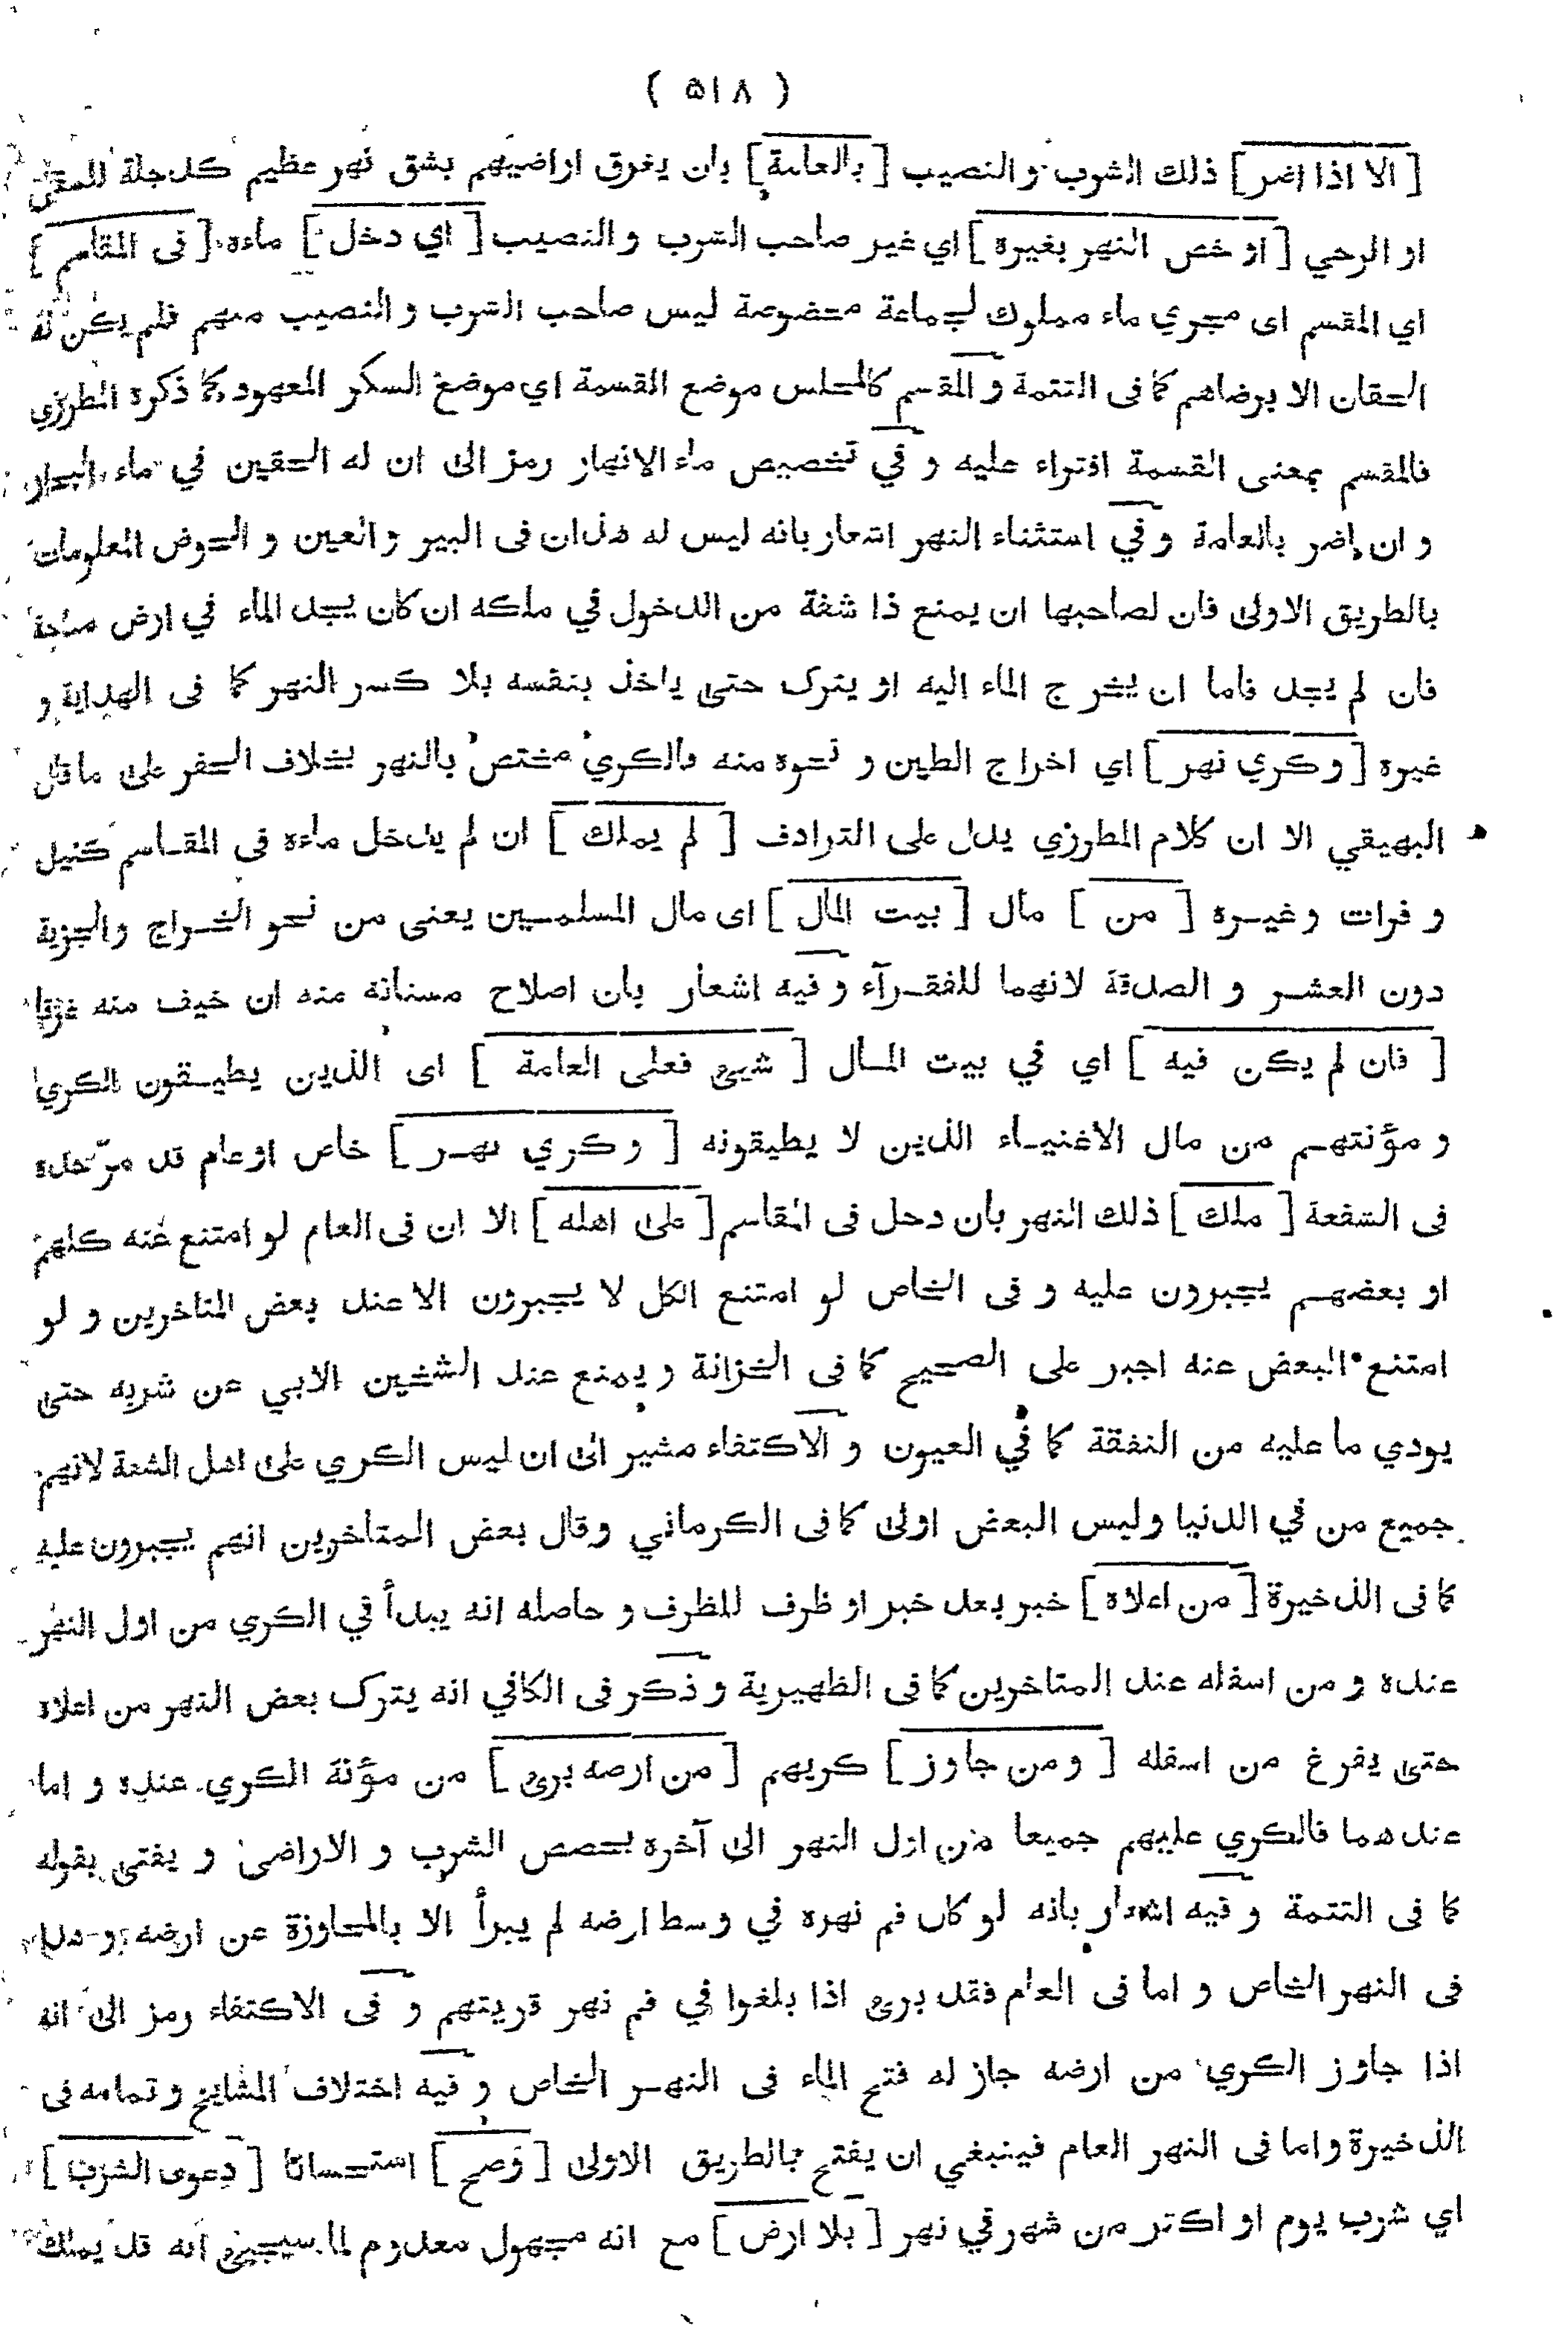 ( ۵۱۸ )
[ الا اذا اضر ] ذلك الشرب و النصيب [ بالعامة ] بان يغرق اراضيهم بشق نهر عظيم كدجلة للسقي
او الرحي [ او خص النهر بغيرة ] اي غير صاحب الشرب و النصيب [ اي دخل ] ماءه [ فى المقاسم ]
اي المقسم اى مجري ماء مملوك لجماعة مخصوصة ليس صاحب الشرب و النصيب منهم فلم يكن له
الحقان الا برضاهم كما فى التتمة و المقسم كالمجلس موضع القسمة اي موضع السكر المعهود كما ذكرة المطرزي
فالمقسم بمعنى القسمة افتراء عليه و في تخصيص ماء الانهار رمز الى ان له الحقين في ماء البحار
و ان اضر بالعامة و في استثناء النهر اشعار بانه ليس له هذان فى البير و العين و الحوض المعلومات
بالطريق الاولى فان لصاحبها ان يمنع ذا شفة من الدخول في ملكه ان كان يجد الماء في ارض مباحة
فان لم يجد فاما ان يخرج الماء اليه او يترك حتى ياخذ بنفسه بلا كسر النهر كما فى الهداية و
غيرة [ و كري نهر ] اي اخراج الطين و نحوه منه فالكري مختص بالنهر بخلاف الحفر على ما قال
البهيقي الا ان كلام المطرزي يدل على الترادف [ لم يملك ] ان لم يدخل ماءه فى المقاسم كنيل
و فرات و غيره [ من ] مال [ بيت المال ] اى مال المسلمين يعنى من نحو الخراج والجزية
دون العشر و الصدقة لانهما للفقرآء و فيه اشعار بان اصلاح مسناته منه ان خيف منه غرقا
[ فان لم يكن فيه ] اي في بيت المال [ شيئ فعلى العامة ] اى الذين يطيقون الكري
و مؤنتهم من مال الاغنياء الذين لا يطيقونه [ و كري نهر ] خاص او عام قد مرّ حده
فى الشفعة [ ملك ] ذلك النهر بان دخل فى المقاسم [ على اهله ] الا ان فى العام لو امتنع عنه كلهم
او بعضهم يجبرون عليه و فى الخاص لو امتنع الكل لا يجبرون الا عند بعض المتاخرين و لو
امتنع البعض عنه اجبر على الصحيح كما فى الخزانة و يمنع عند الشخين الابي عن شربه حتى
يودي ما عليه من النفقة كما في العيون و الاكتفاء مشير الى ان ليس الكري على اهل الشفة لانهم
جميع من في الدنيا وليس البعض اولى كما فى الكرماني وقال بعض المتاخرين انهم يجبرون عليه
كما فى الذخيرة [ من اعلاه ] خبر بعد خبر او ظرف للظرف و حاصله انه يبدأ في الكري من اول النهر
عنده و من اسفله عند المتاخرين كما فى الظهيرية و ذكر فى الكافي انه يترك بعض النهر من اعلاه
حتى يفرغ من اسفله [ و من جاوز ] كريهم [ من ارضه برئ ] من مؤنة الكري عنده و اما
عندهما فالكري عليهم جميعا من اول النهر الى آخره بحصص الشرب و الاراضى و يفتى بقوله
كما فى التتمة و فيه اشعار بانه لو كان فم نهره في وسط ارضه لم يبرأ الا بالمجاوزة عن ارضه و هذا
فى النهر الخاص و اما فى العام فقد برئ اذا بلغوا في فم نهر قريتهم و فى الاكتفاء رمز الى انه
اذا جاوز الكري من ارضه جاز له فتح الماء فى النهر الخاص و فيه اختلاف المشايخ و تمامه فى
الذخيرة و اما فى النهر العام فينبغي ان يفتح بالطريق الاولى [ و صح ] استحسانا [ دعوى الشرب ]
اي شرب يوم او اكثر من شهر في نهر [ بلا ارض ] مع انه مجهول معدوم لما سيجيئ انه قد يملك